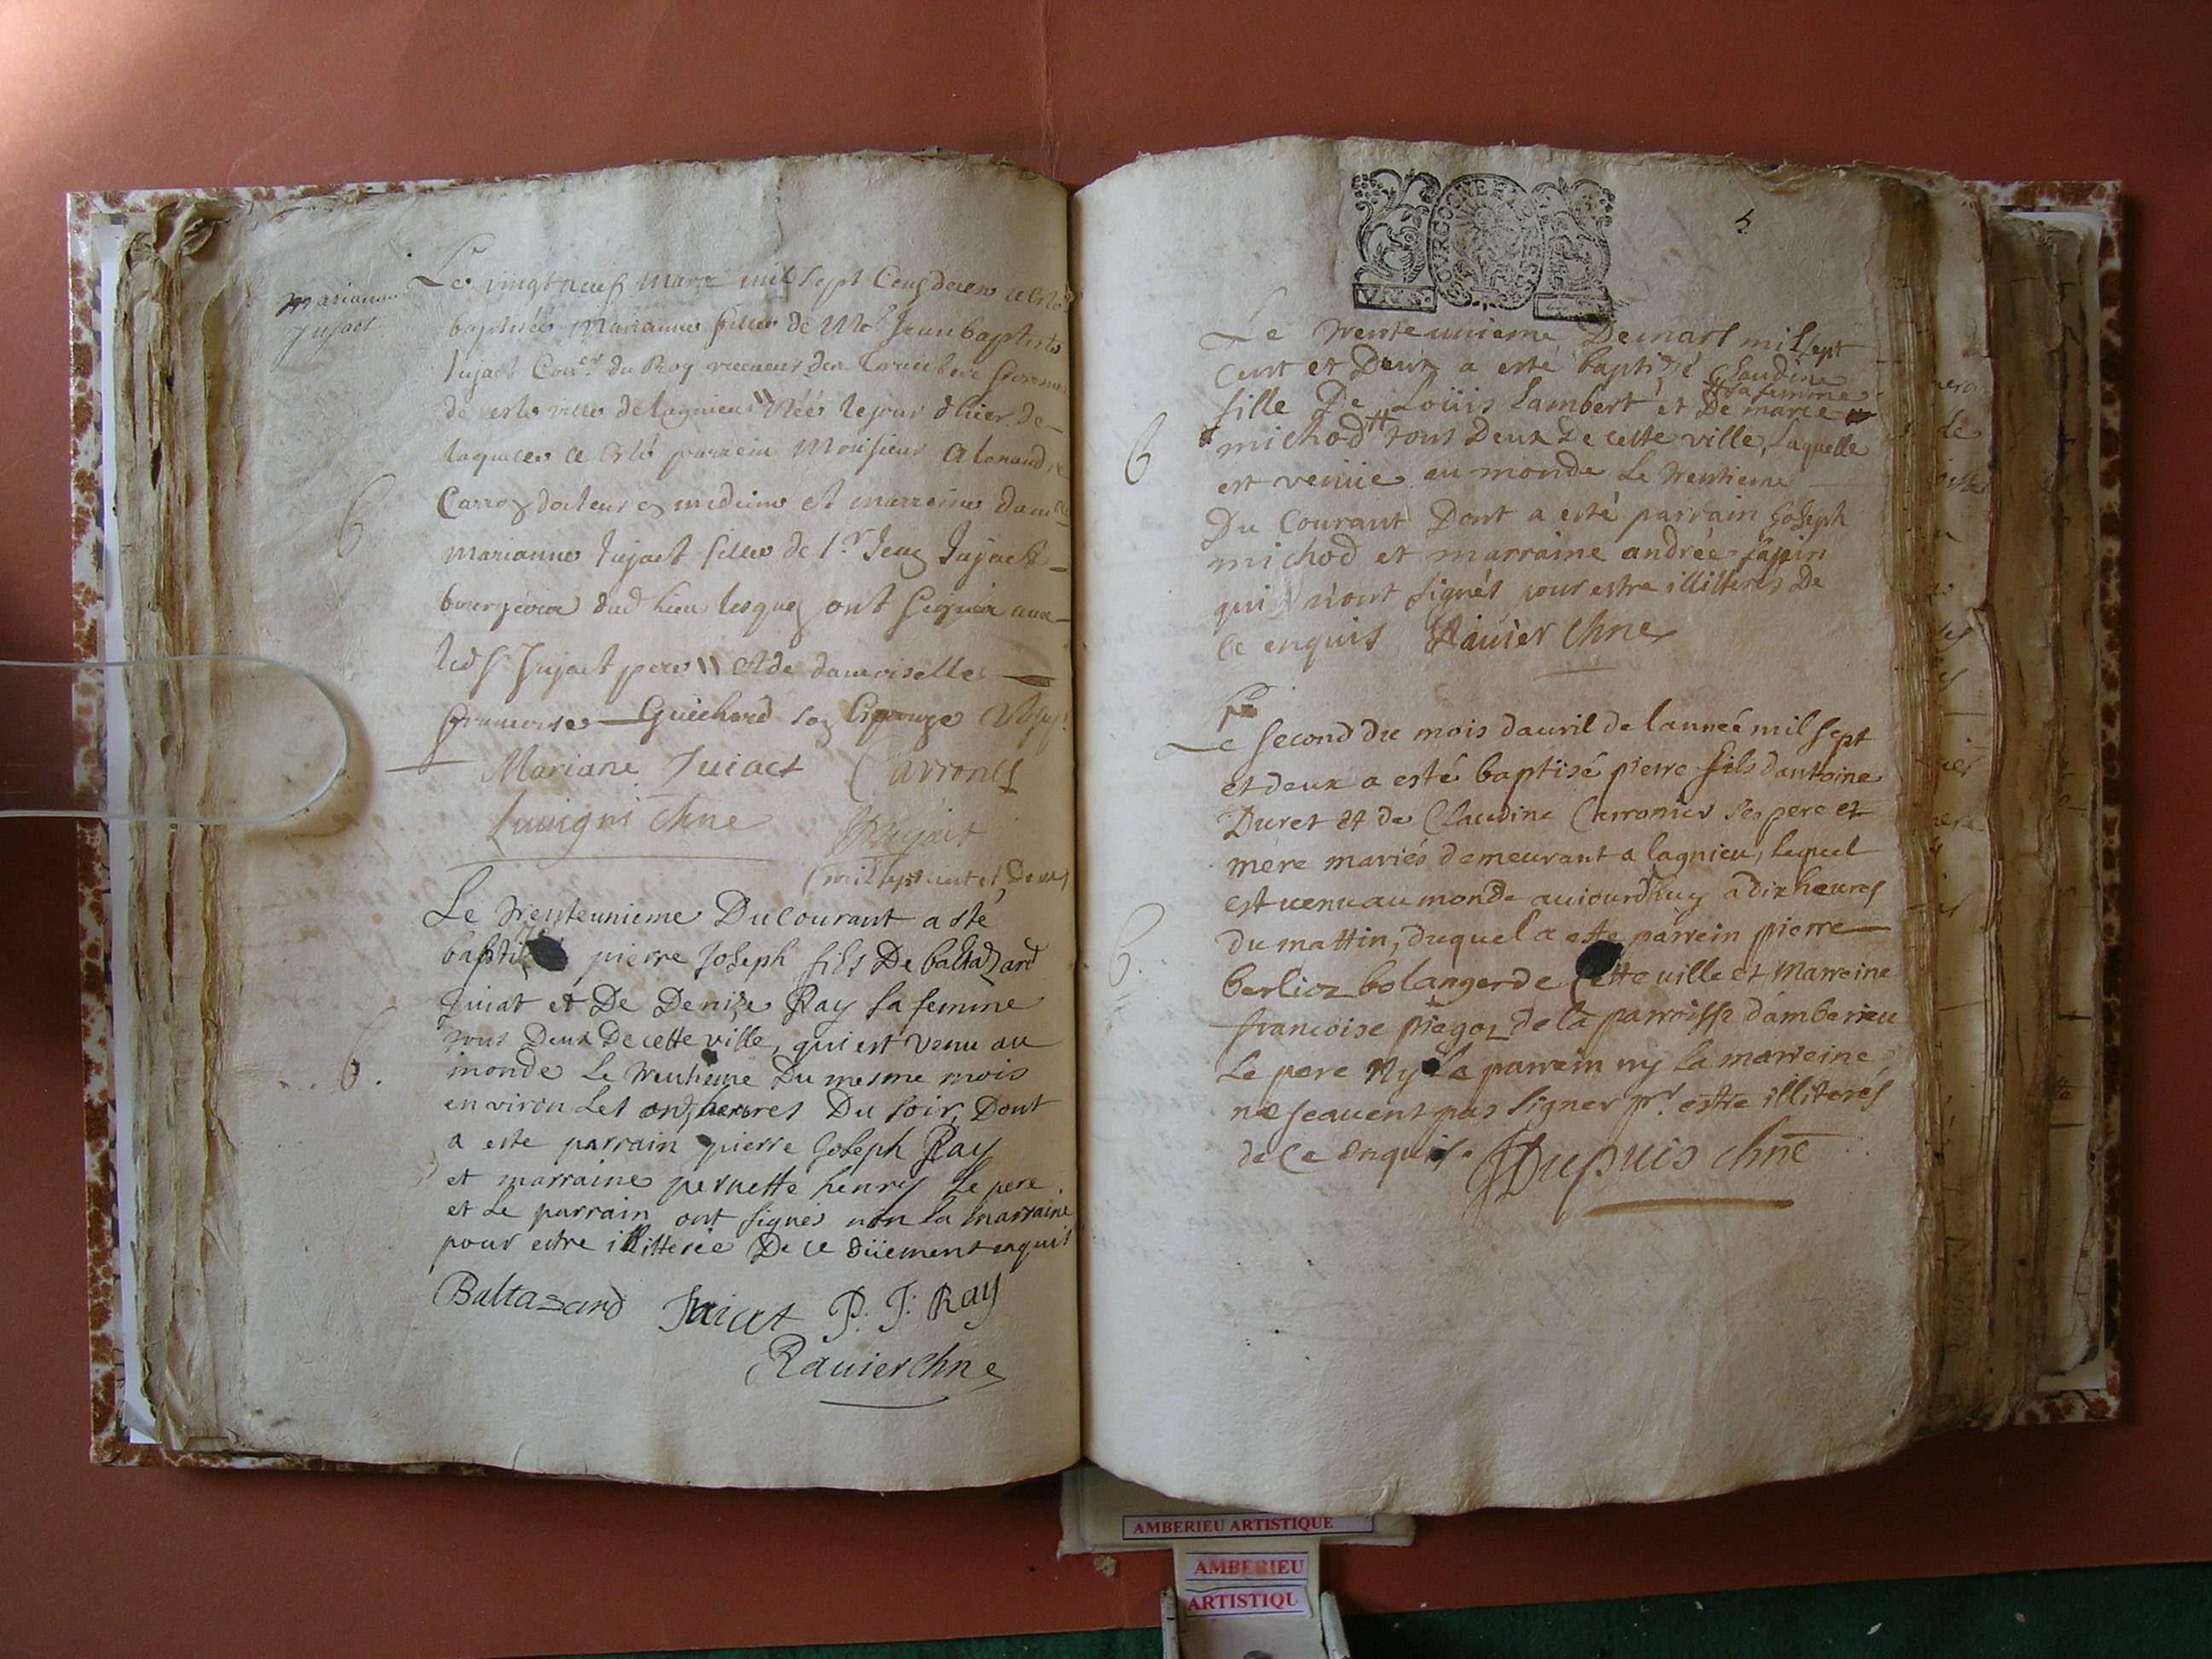 Marianne
Jujact
Le vingt neuf mars mil sept Cens deux a esté
baptisée Marianne fille de Me Jean baptiste
Jujact Conr du Roy receveur des
de cette ville de lagnieu née le jour d'hier de
laquelle a esté parrein Monsieur Alexandre
Carron docteur en medicine et marreine dam
marianne Jujact fille de sr Jean Jujact
bourgeois dud lieu lesquels ont signés avec
led sr Jujact pere \\ et de damoiselle
francoise Guichard son Epouze
Mariane Juiact Carron
chne
Jujact
(mil sept cent et Deux)
6
Le trenteunieme Du Courant a esté
baptisé pierre Joseph fils De baltazard
Juiat et De Denize Ray sa femme
tous Deux De cette ville, qui est venu au
monde Le trentieme Du mesme mois
environ Les onze heures Du soir, Dont
a este parrain pierre Joseph Ray
et marraine pernette henry Le pere
et Le parrain ont signés non la marraine
pour estre illitterée De ce düement enquis
Baltazard Juiact P. J. Ray
Ravier chne
6
5
Le trenteunieme De mars mil sept
cent et Deux a esté baptizé Claudine
fille De Loüis Lambert et De marie
sa femme
michod tous Deux De cette ville, Laquelle
est venüe au monde Le trentieme
Du Courant Dont a esté parrain Joseph
michod et marraine andrée sapin
qui n'ont signés pour estre illitterés De
ce enquis Ravier chne
6
Le second du mois dauril de lanneé mil sept
et deux a esté baptisé pierre fils dantoine
Duret et de Claudine Carronier ses pere et
mere mariés demeurant a lagnieu, lequel
est uenu au monde auiourdhuy a dix heures
du mattin, duquel a esté parrein pierre
berlioz bolanger de Cette uille et Marreine
francoise de la parroisse damberieu
Le pere Ny Le parrein ny la marreine
ne scauent pas signer pr. estre illiterés
de Ce Enquis. Dupuis chne
6
AMBERIEU ARTISTIQUE
AMBERIEU
ARTISTIQU